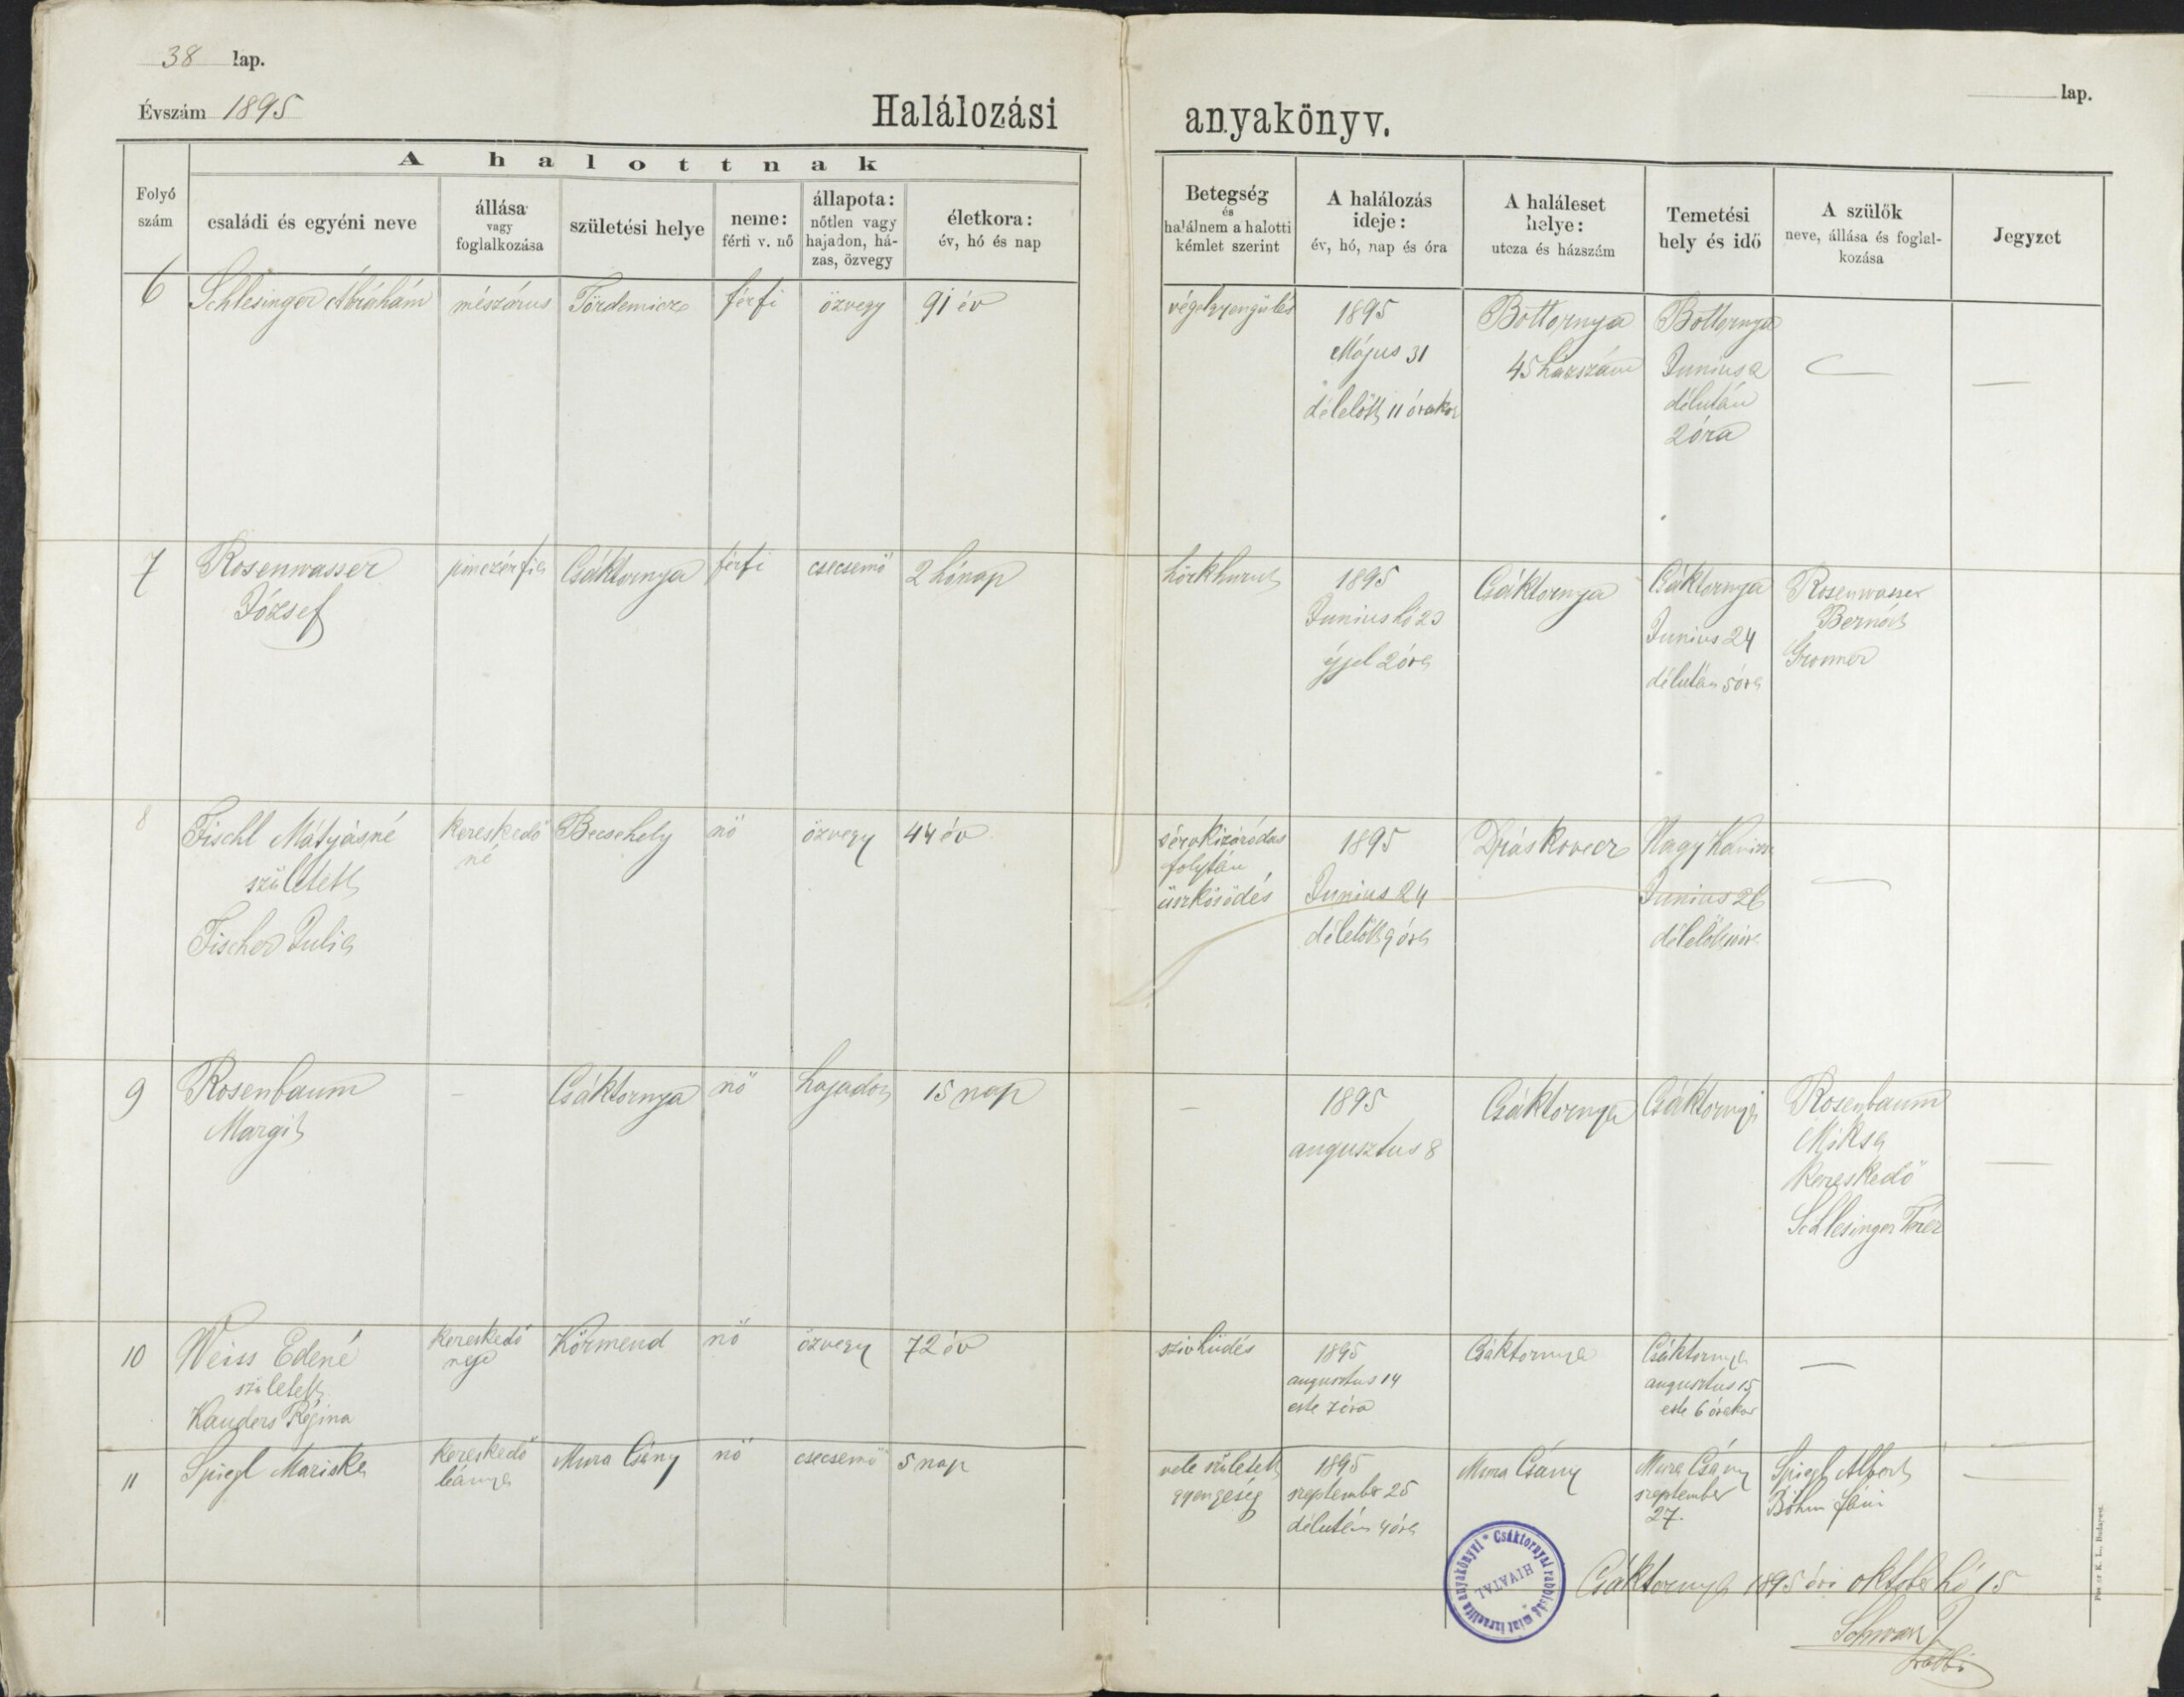 38 lap.
Évszám 1895
Halálozási anyakönyv.
lap.
A halottnak
Folyó szám
családi és egyéni neve
állása vagy foglalkozása
születési helye
neme: férfi v. nő
állapota: nőtlen vagy hajadon, há-
zas, özvegy
életkora: év, hó és nap
Betegség és halálnem a halotti kémlet szerint
A halálozás ideje: év, hó, nap és óra
A haláleset helye: utcza és házszám
Temetési hely és idő
A szülők neve, állása és foglal-
kozása
Jegyzet
6
Schlesinger Ábrahám
mészáros
Tördemicze
férfi
özvegy
91 év
végelgyengülés
1895
Május 31
délelőtt 11 órakor
Bottornya
45 házszám
Bottornya
Junius 2
délután
2 óra
7
Rosenwasser
József
pinczérfia
Csáktornya
férfi
csecsemő
2 hónap
hörkhurut
1895
Junius hó 23
éjjel 2 óra
Csáktornya
Csáktornya
Junius 24
délután 5 óra
Rosenwasser
Bernát
8
Fischl Mátyásné
született
Fischer Julia
kereskedő
né
Becsehely
nő
özvegy
44 év
sérvkizáródás
folytán
üszkösödés
1895
Junius 24
délelőtt 9 óra
Dráskovecz
Nagy Kanizsa
Junius 26
délelőtt
9
Rosenbaum
Margit
–
Csáktornya
nő
hajadon
15 nap
–
1895
augusztus 8
Csáktornya
Csáktornya
Rosenbaum
Miksa
kereskedő
Schlesinger Teréz
10
Weiss Edené
született
Kauders Régina
kereskedő
neje
Körmend
nő
özvegy
72 év
szivhüdés
1895
augusztus 14
este 7 óra
Csáktornya
Csáktornya
augusztus 15
este 6 órakor
11
Spiegl Mariska
kereskedő
leánya
Mura Csány
nő
csecsemő
5 nap
vele született
gyengeség
1895
szeptember 25
délután 4 óra
Mura Csány
Mura Csány
szeptember
27.
Spiegl Albert
Böhm Fáni
Csáktornyai rabbiság mint izraelita anyakönyvi
HIVATAL
Csáktornya 1895 évi október hó 15
Schwarz
rabbi